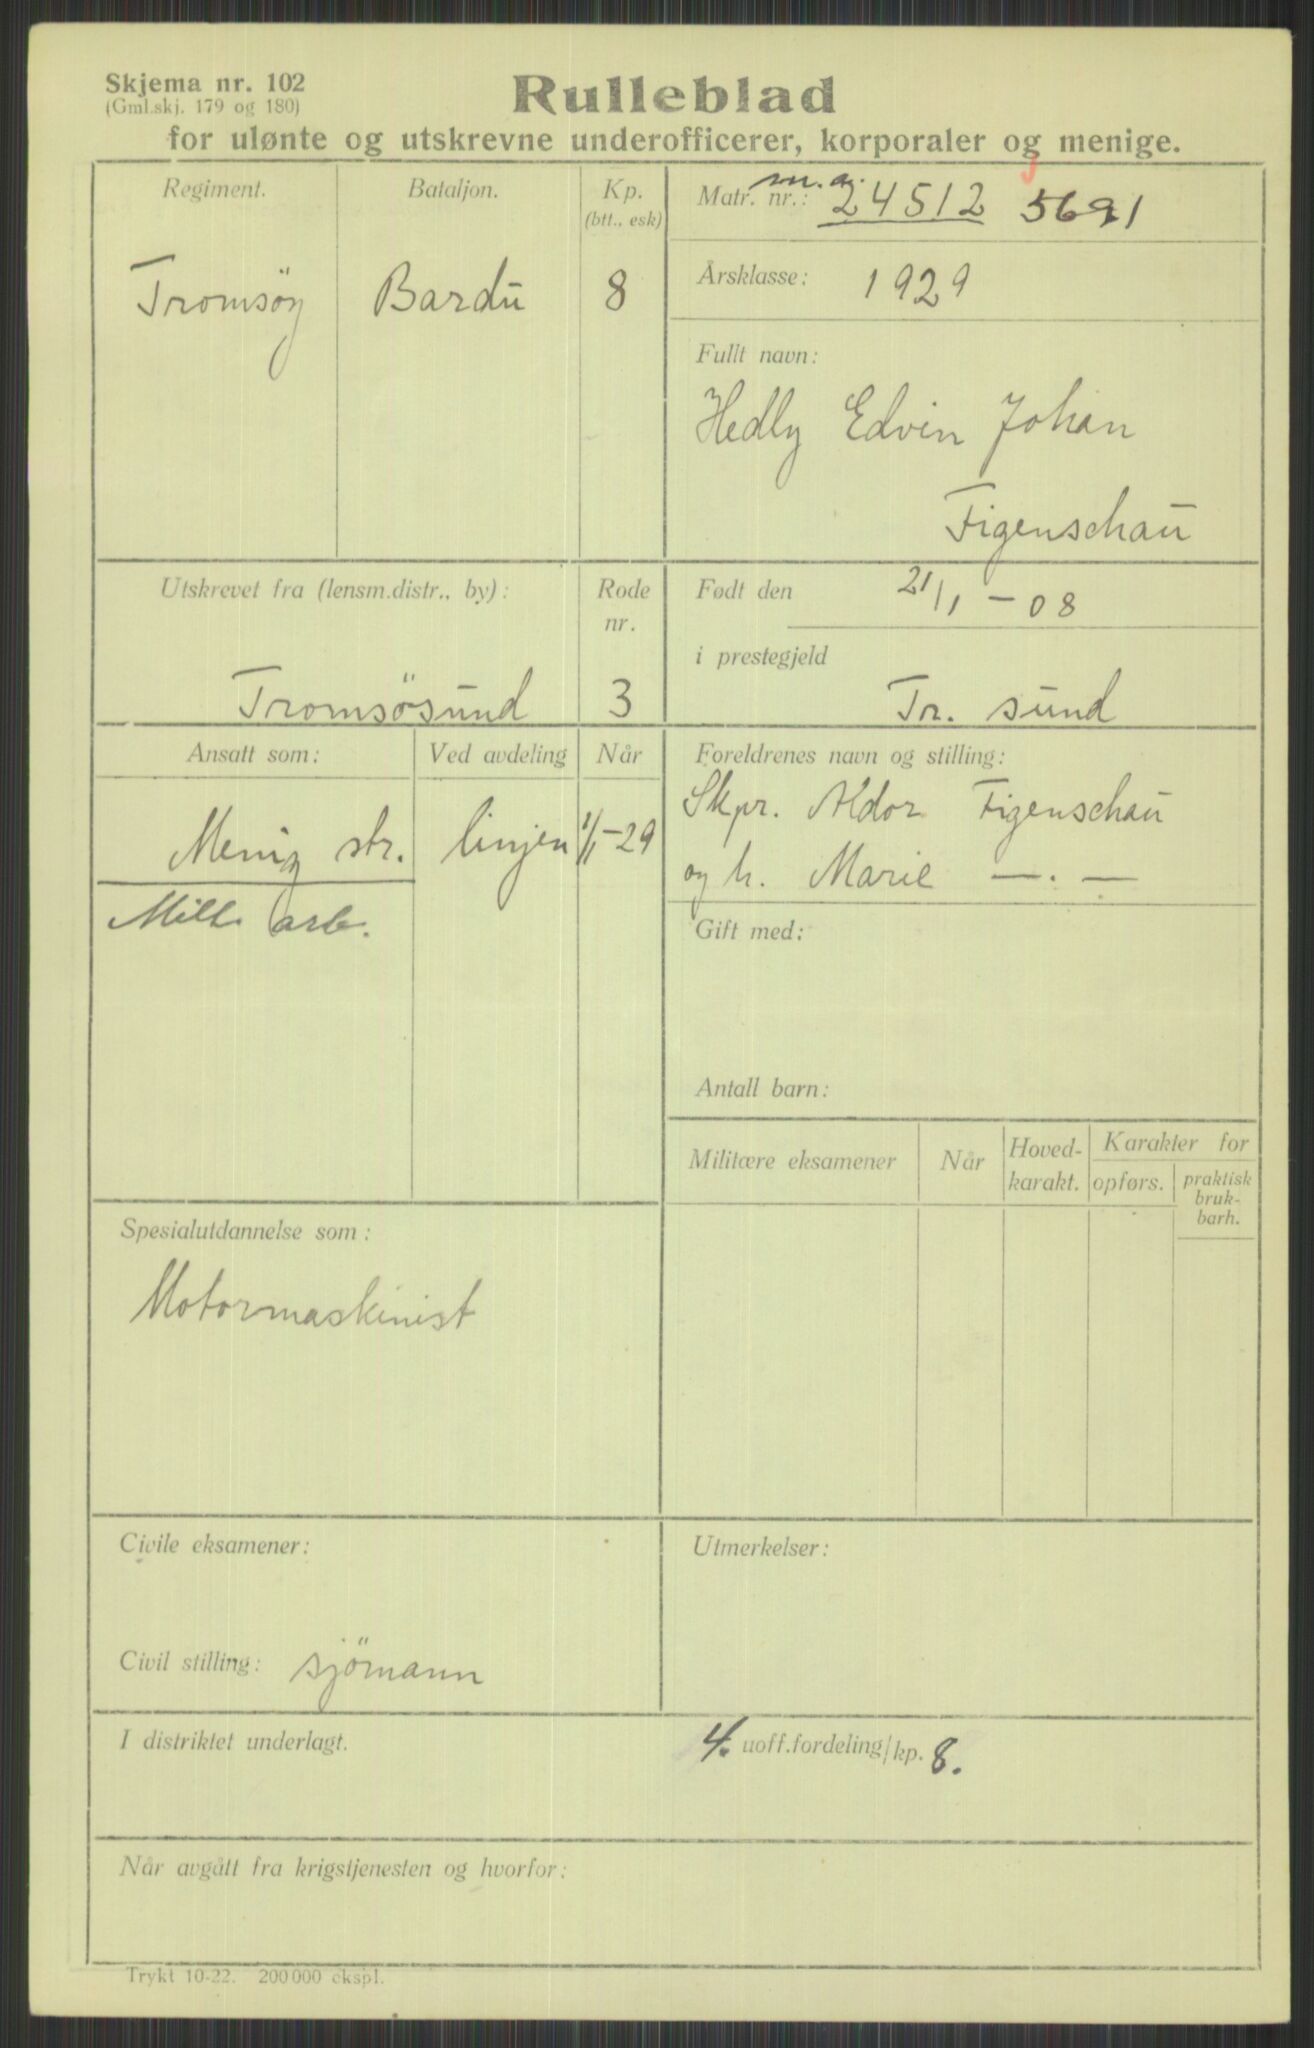 Skjema nr. 102
(Gml.skj. 179 og 180)
Rulleblad
for ulønte og utskrevne underofficerer, korporaler og menige.
Regiment.
Tromsöy
Bataljon.
Bardu
Kp.
(btt., esk)
8
Matr. nr.: m.a. 24512 5691
Årsklasse: 1929
Fullt navn:
Hedly Edvin Johan
Figenschau
Utskrevet fra (lensm.distr., by):
Tromsösund
Rode
nr.
3
Født den 21/1 – 08
i prestegjeld
Tr. sund
Ansatt som:
Ved avdeling
Når
Menig str. linjen 1/1-29
Mill. arb.
Foreldrenes navn og stilling:
Skpr. Aldor Figenschau
og h. Marie — . —
Gift med:
Antall barn:
Militære eksamener
Når
Hoved-
karakt.
Karakter for
opførs.
praktisk
bruk-
barh.
Spesialutdannelse som:
Motormaskinist
Civile eksamener:
Civil stilling: sjömann
Utmerkelser:
I distriktet underlagt.
4. uoff.fordeling/kp. 8.
Når avgått fra krigstjenesten og hvorfor:
Trykt 10-22. 200 000 ekspl.